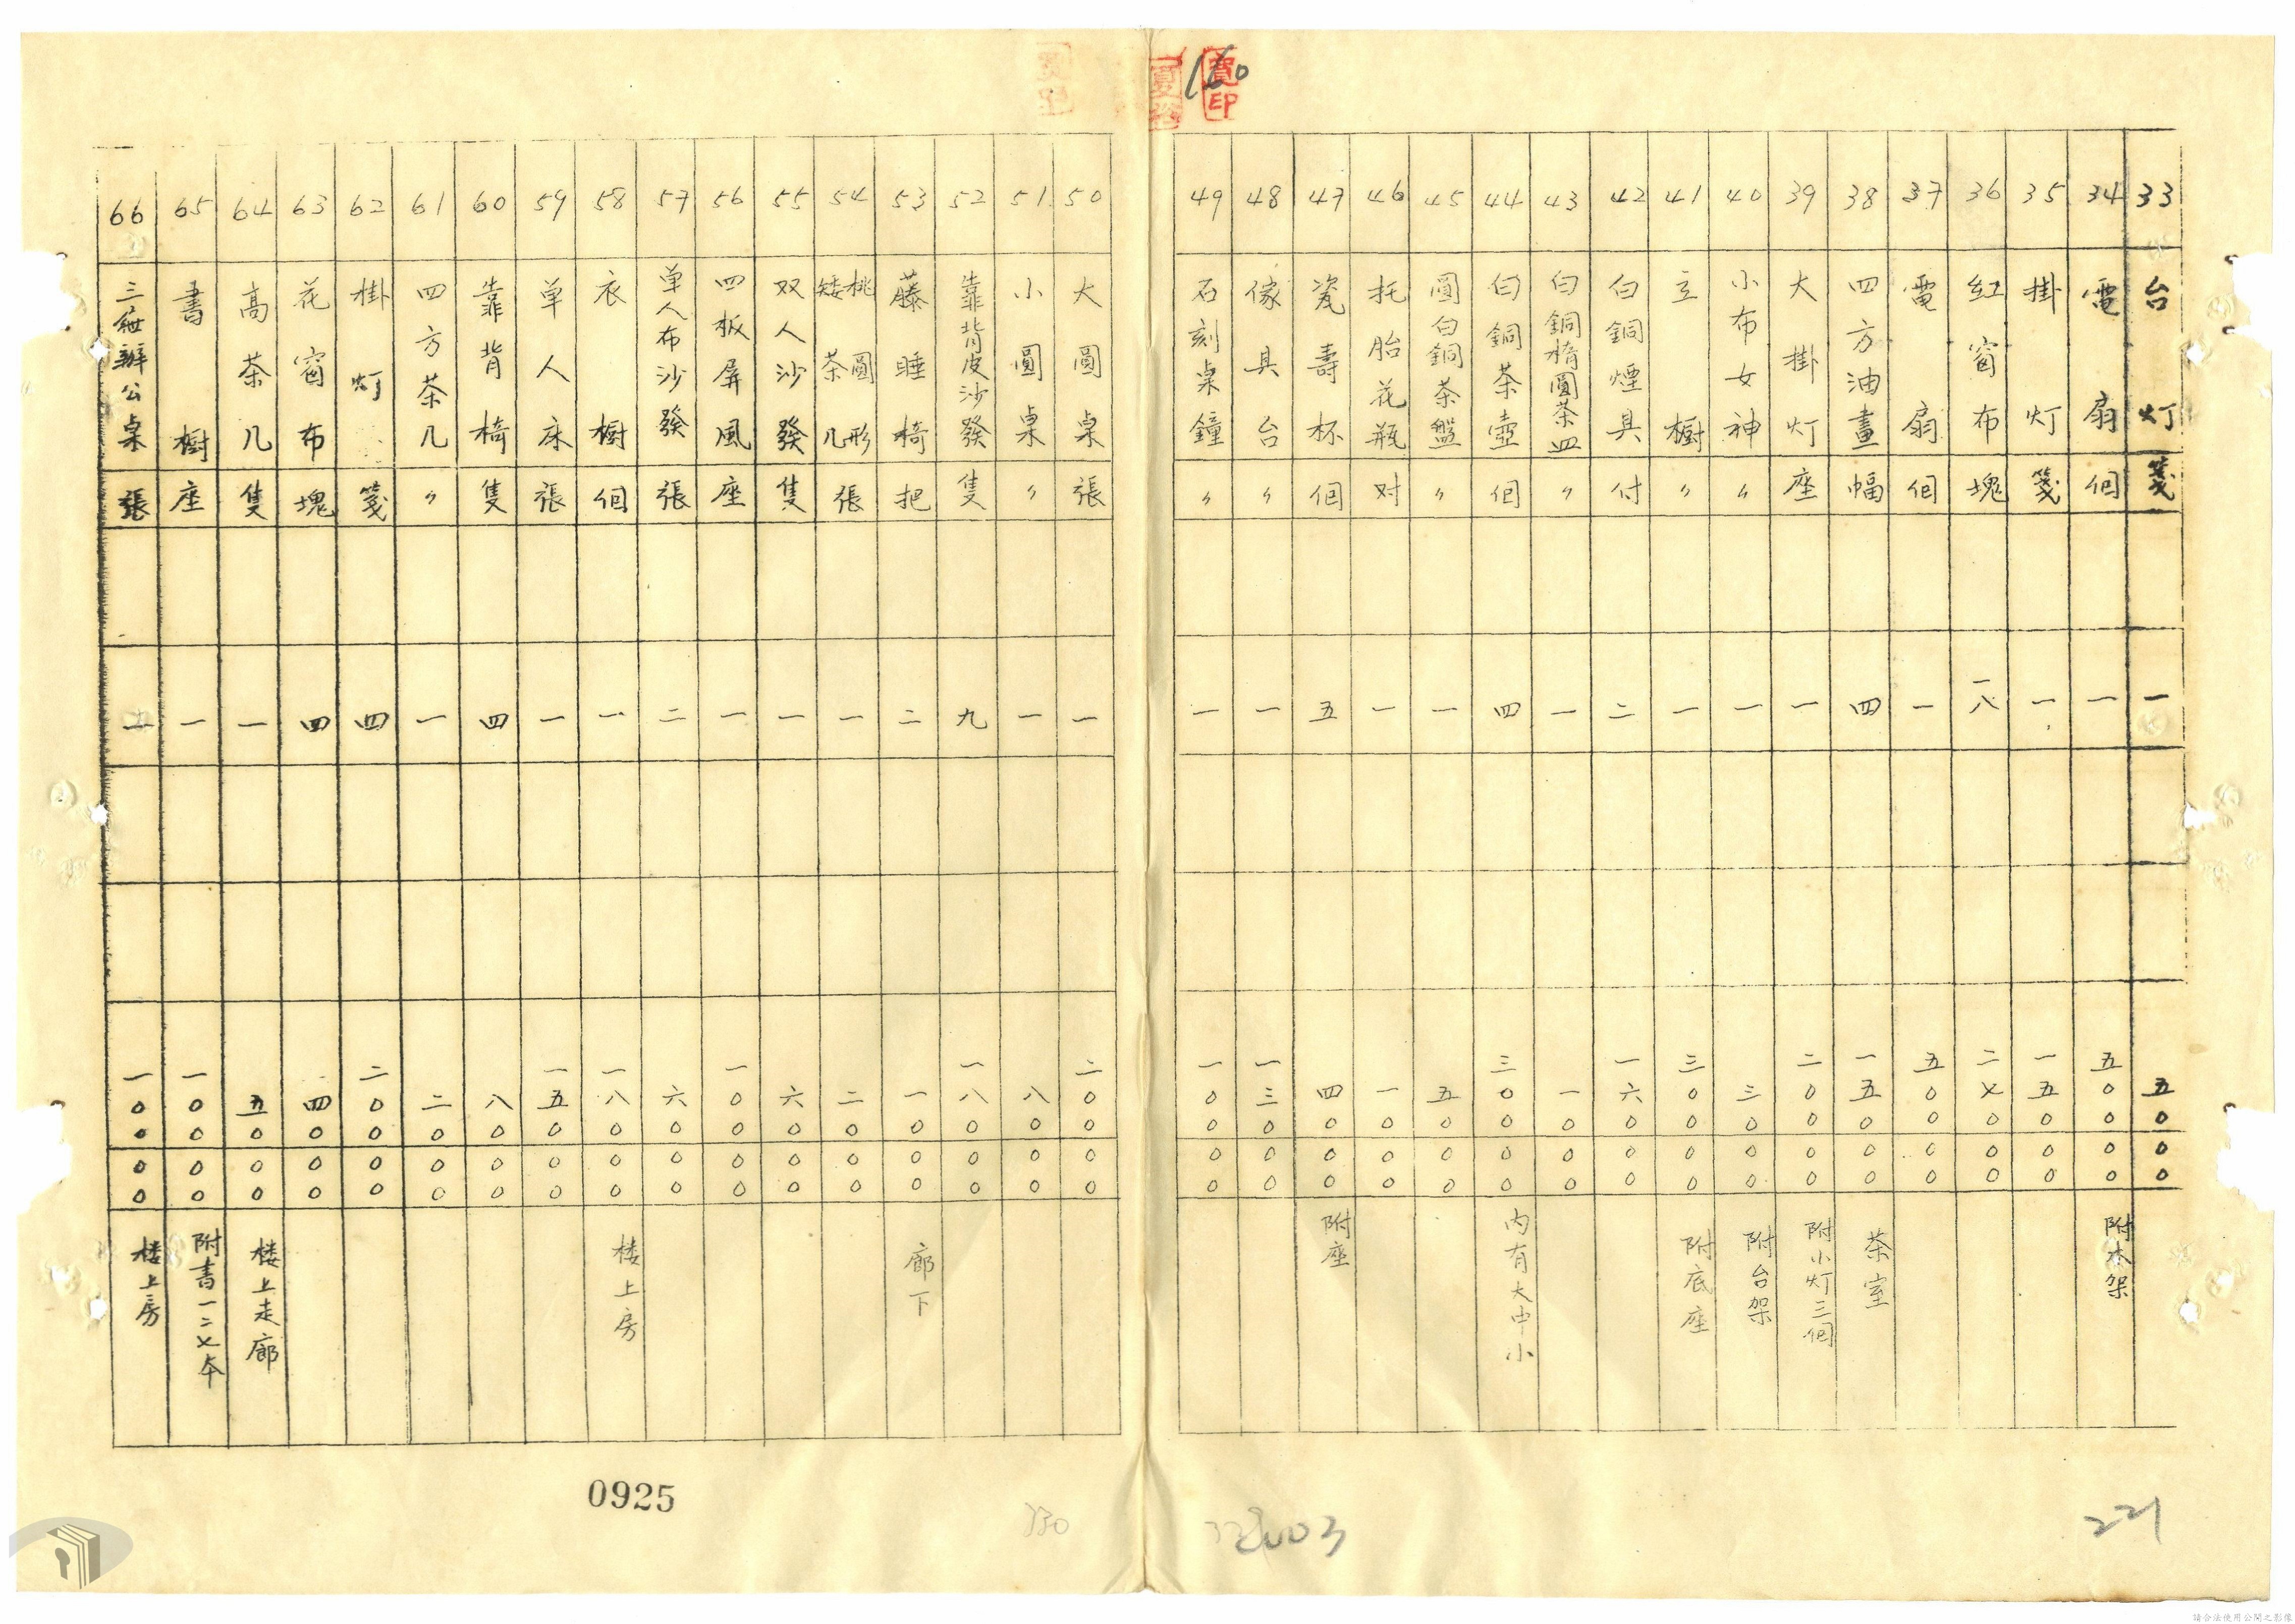 160
33 台灯 箋 一 五〇〇〇
34 電扇 個 一 五〇〇〇〇 附木架
35 掛灯 箋 一 一五〇〇〇
36 紅窗布 塊 一八 二七〇〇〇
37 電扇 個 一 五〇〇〇〇
38 四方油畫 幅 四 一五〇〇〇 茶室
39 大掛灯 座 一 二〇〇〇〇 附小灯三個
40 小布女神 〃 一 三〇〇〇 附台架
41 立櫥 〃 一 三〇〇〇〇 附底座
42 白銅煙具 付 二 一六〇〇〇
43 白銅橢圓茶皿 〃 一 一〇〇〇
44 白銅茶壺 個 四 三〇〇〇〇 內有大中小
45 圓白銅茶盤 〃 一 五〇〇〇
46 托胎花瓶 对 一 一〇〇〇
47 瓷壽杯 個 五 四〇〇〇 附座
48 傢具台 〃 一 一三〇〇〇
49 石刻桌鐘 〃 一 一〇〇〇〇
50 大圓桌 張 一 二〇〇〇〇
51 小圓桌 〃 一 八〇〇〇
52 靠背皮沙發 隻 九 一八〇〇〇
53 藤睡椅 把 二 一〇〇〇 廊下
54 桃圓形矮茶几 張 一 二〇〇〇
55 双人沙發 隻 一 六〇〇〇
56 四板屏風 座 一 一〇〇〇〇
57 单人布沙發 張 二 六〇〇〇
58 衣櫥 個 一 一八〇〇〇 楼上房
59 单人床 張 一 一五〇〇〇
60 靠背椅 隻 四 八〇〇〇
61 四方茶几 〃 一 二〇〇〇
62 掛灯 箋 四 二〇〇〇〇
63 花窗布 塊 四 四〇〇〇
64 高茶几 隻 一 五〇〇〇 楼上走廊
65 書櫥 座 一 一〇〇〇〇 附書一二七本
66 三屜辦公桌 張 一〇〇〇〇 楼上房
0925
330
221
請合法使用公開之影像